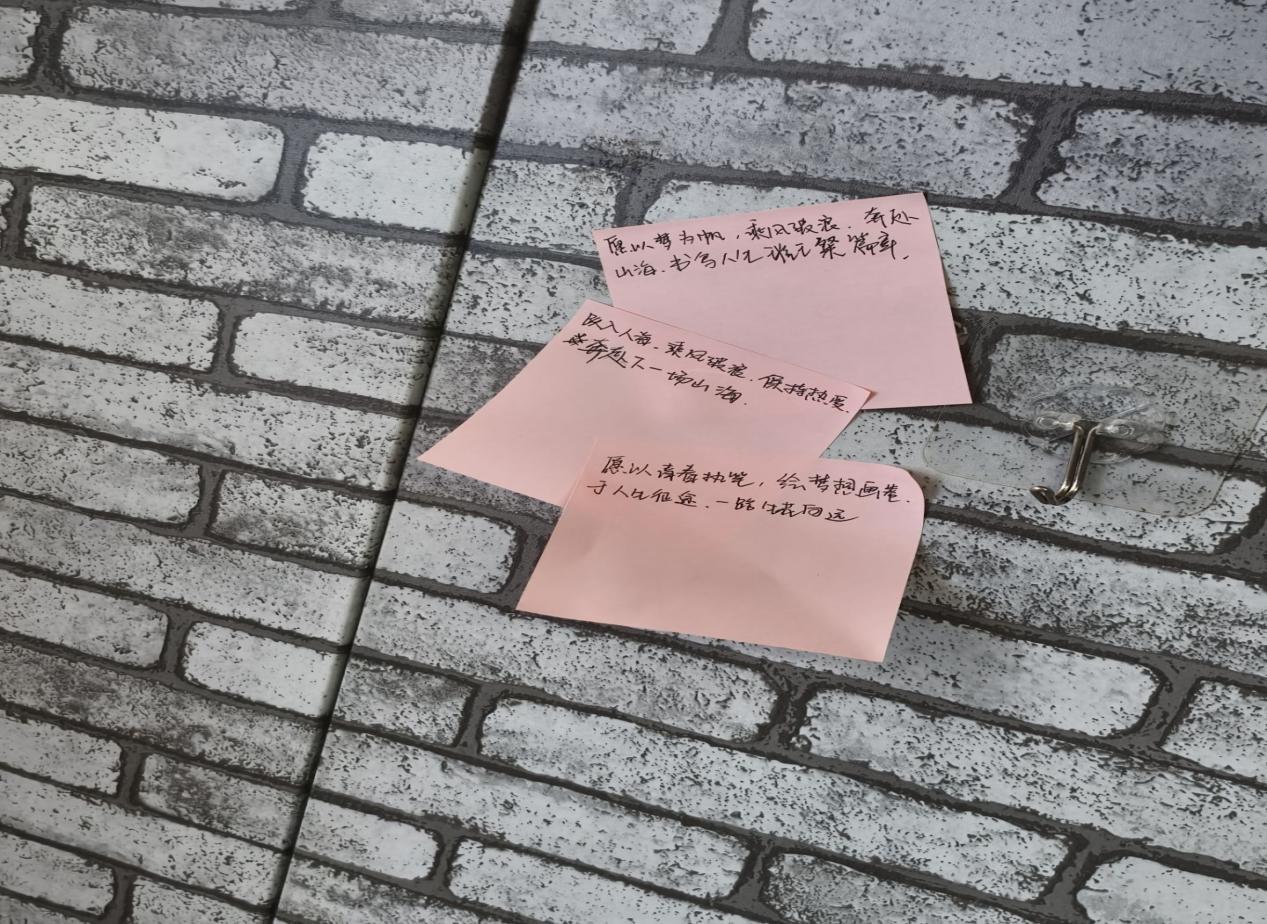 愿以梦为帆，乘风破浪．奔赴
山海．书写人生璀璨篇章．
跃入人海．乘风破浪．保持热爱．
奔赴下一场山海．
愿以青春执笔，绘梦想画卷．
于人生征途．一路生花向远